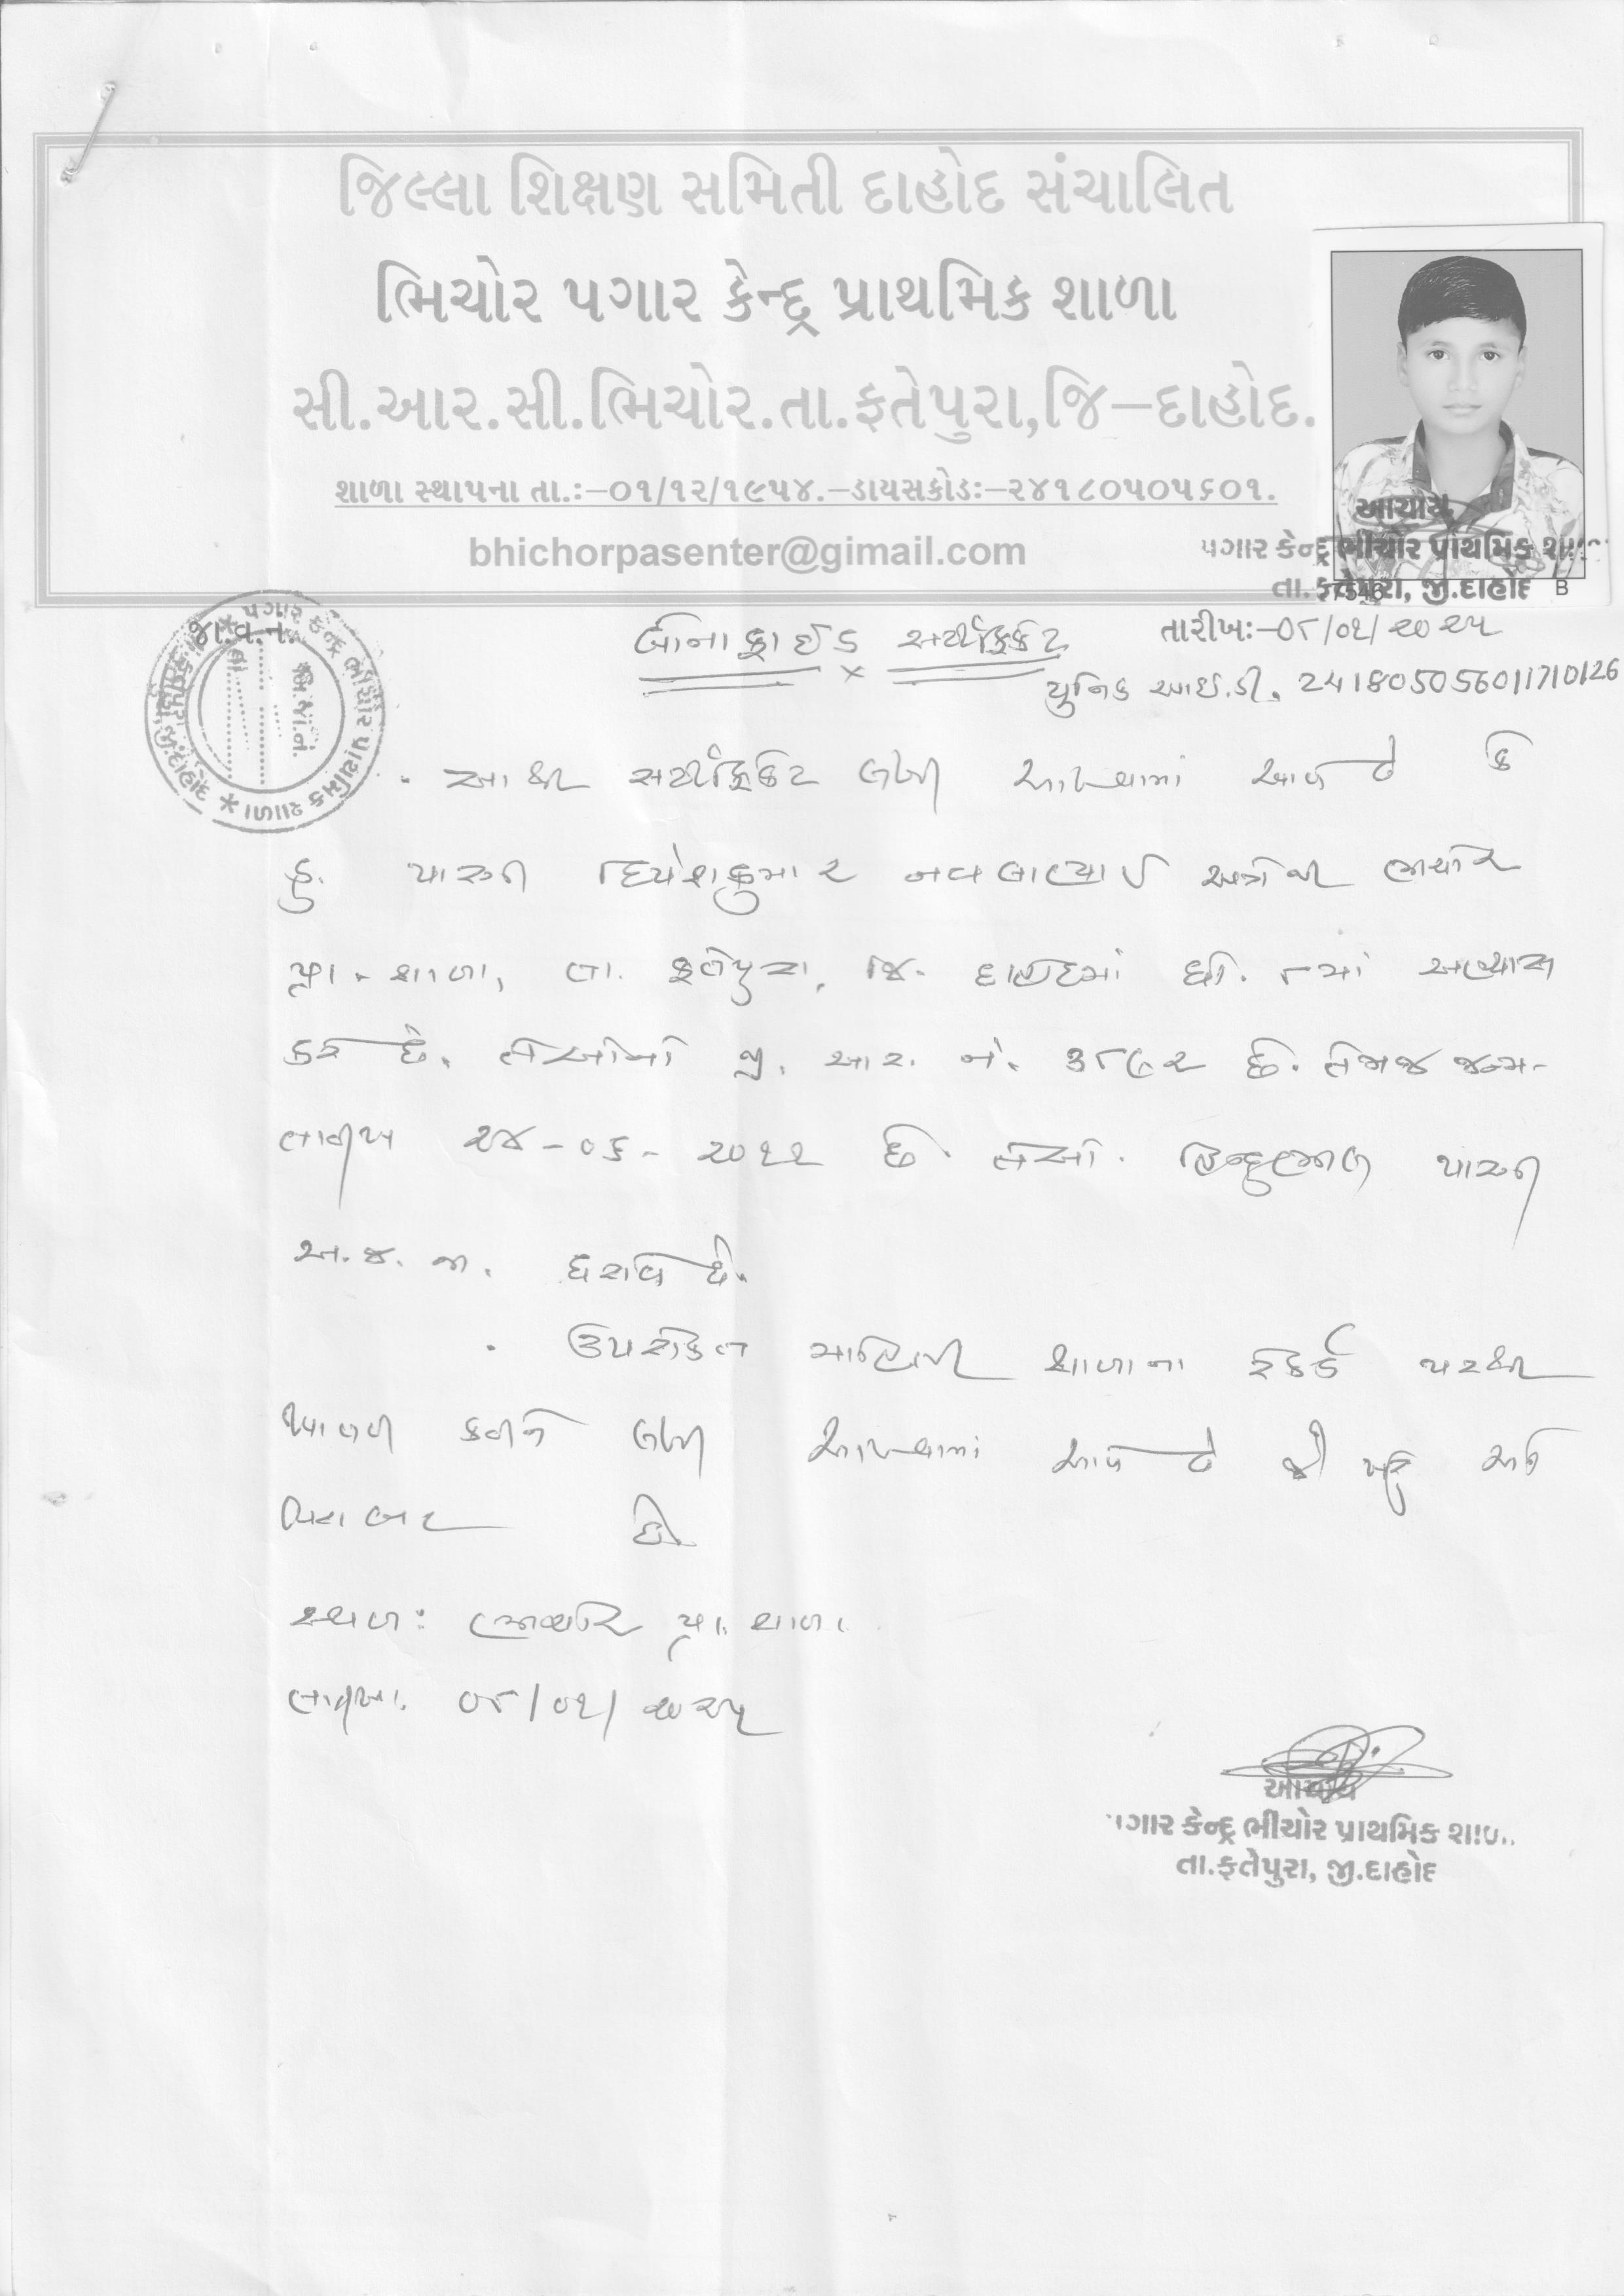 જિલ્લા શિક્ષણ સમિતી દાહોદ સંચાલિત
ભિચોર પગાર કેન્દ્ર પ્રાથમિક શાળા
સી.આર.સી.ભિચોર.તા.ફતેપુરા,જિ–દાહોદ.
શાળા સ્થાપના તા.:–૦૧/૧૨/૧૯૫૪.–ડાયસકોડઃ–૨૪૧૮૦૫૦૫૬૦૧.
bhichorpasenter@gimail.com
આચાર્ય
પગાર કેન્દ્ર ભીચોર પ્રાથમિક શા
તા.ફતેપુરા, જી.દાહોદ
B
જા.વ.ન.
પગાર કેન્દ્ર ભીચોર પ્રાથમિક શાળા
બોનાફાઈડ સર્ટીફિકેટ
તારીખઃ–૦૮/૦૧/૨૦૨૫
યુનિક આઈ.ડી. 241805056011710126
આથી સર્ટીફિકેટ લખી આપવામાં આવે છે કે
કુ. પારગી દિપેશકુમાર નવલાભાઈ અત્રેની ભીચોર
પ્રા. શાળા, તા. ફતેપુરા, જિ. દાહોદમાં ધો. ૮માં અભ્યાસ
કરે છે. તેઓનો જી. આર. નં. ૩૮૯૨ છે. તેમજ જન્મ-
તારીખ ૨૪-૦૬-૨૦૧૧ છે. તેઓ. હિન્દુભીલ પારગી
અ.જ.જા. ધરાવે છે.
ઉપરોક્ત માહિતી શાળાના રેકર્ડ પરથી
ખાતરી કરીને લખી આપવામાં આવે છે જે ખરું અને
બરાબર છે.
સ્થળ: ભીચોર પ્રા. શાળા.
તારીખ. ૦૮/૦૧/૨૦૨૫
આચાર્ય
પગાર કેન્દ્ર ભીચોર પ્રાથમિક શાળા
તા.ફતેપુરા, જી.દાહોદ